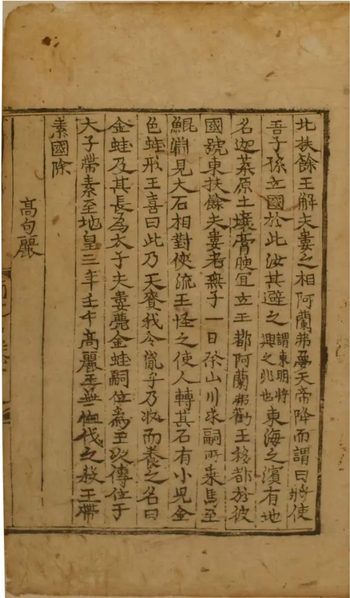 北扶餘王解夫婁之相阿蘭弗夢天帝降而謂曰將使
吾子孫立國於此汝其避之謂東明將興之兆也東海之濱有地
名迦葉原土壤膏腴宜立王都阿蘭弗勸王移都於彼
國號東扶餘夫婁老無子一日祭山川求嗣所乘馬至
鯤淵見大石相對俠流王怪之使人轉其石有小兒金
色蛙形王喜曰此乃天賚我令胤乎乃收而養之名曰
金蛙及其長為太子夫婁薨金蛙嗣位為王次傳位于
大子帶素至地皇三年壬午高麗王無恤伐之殺王帶
素國除
高句麗